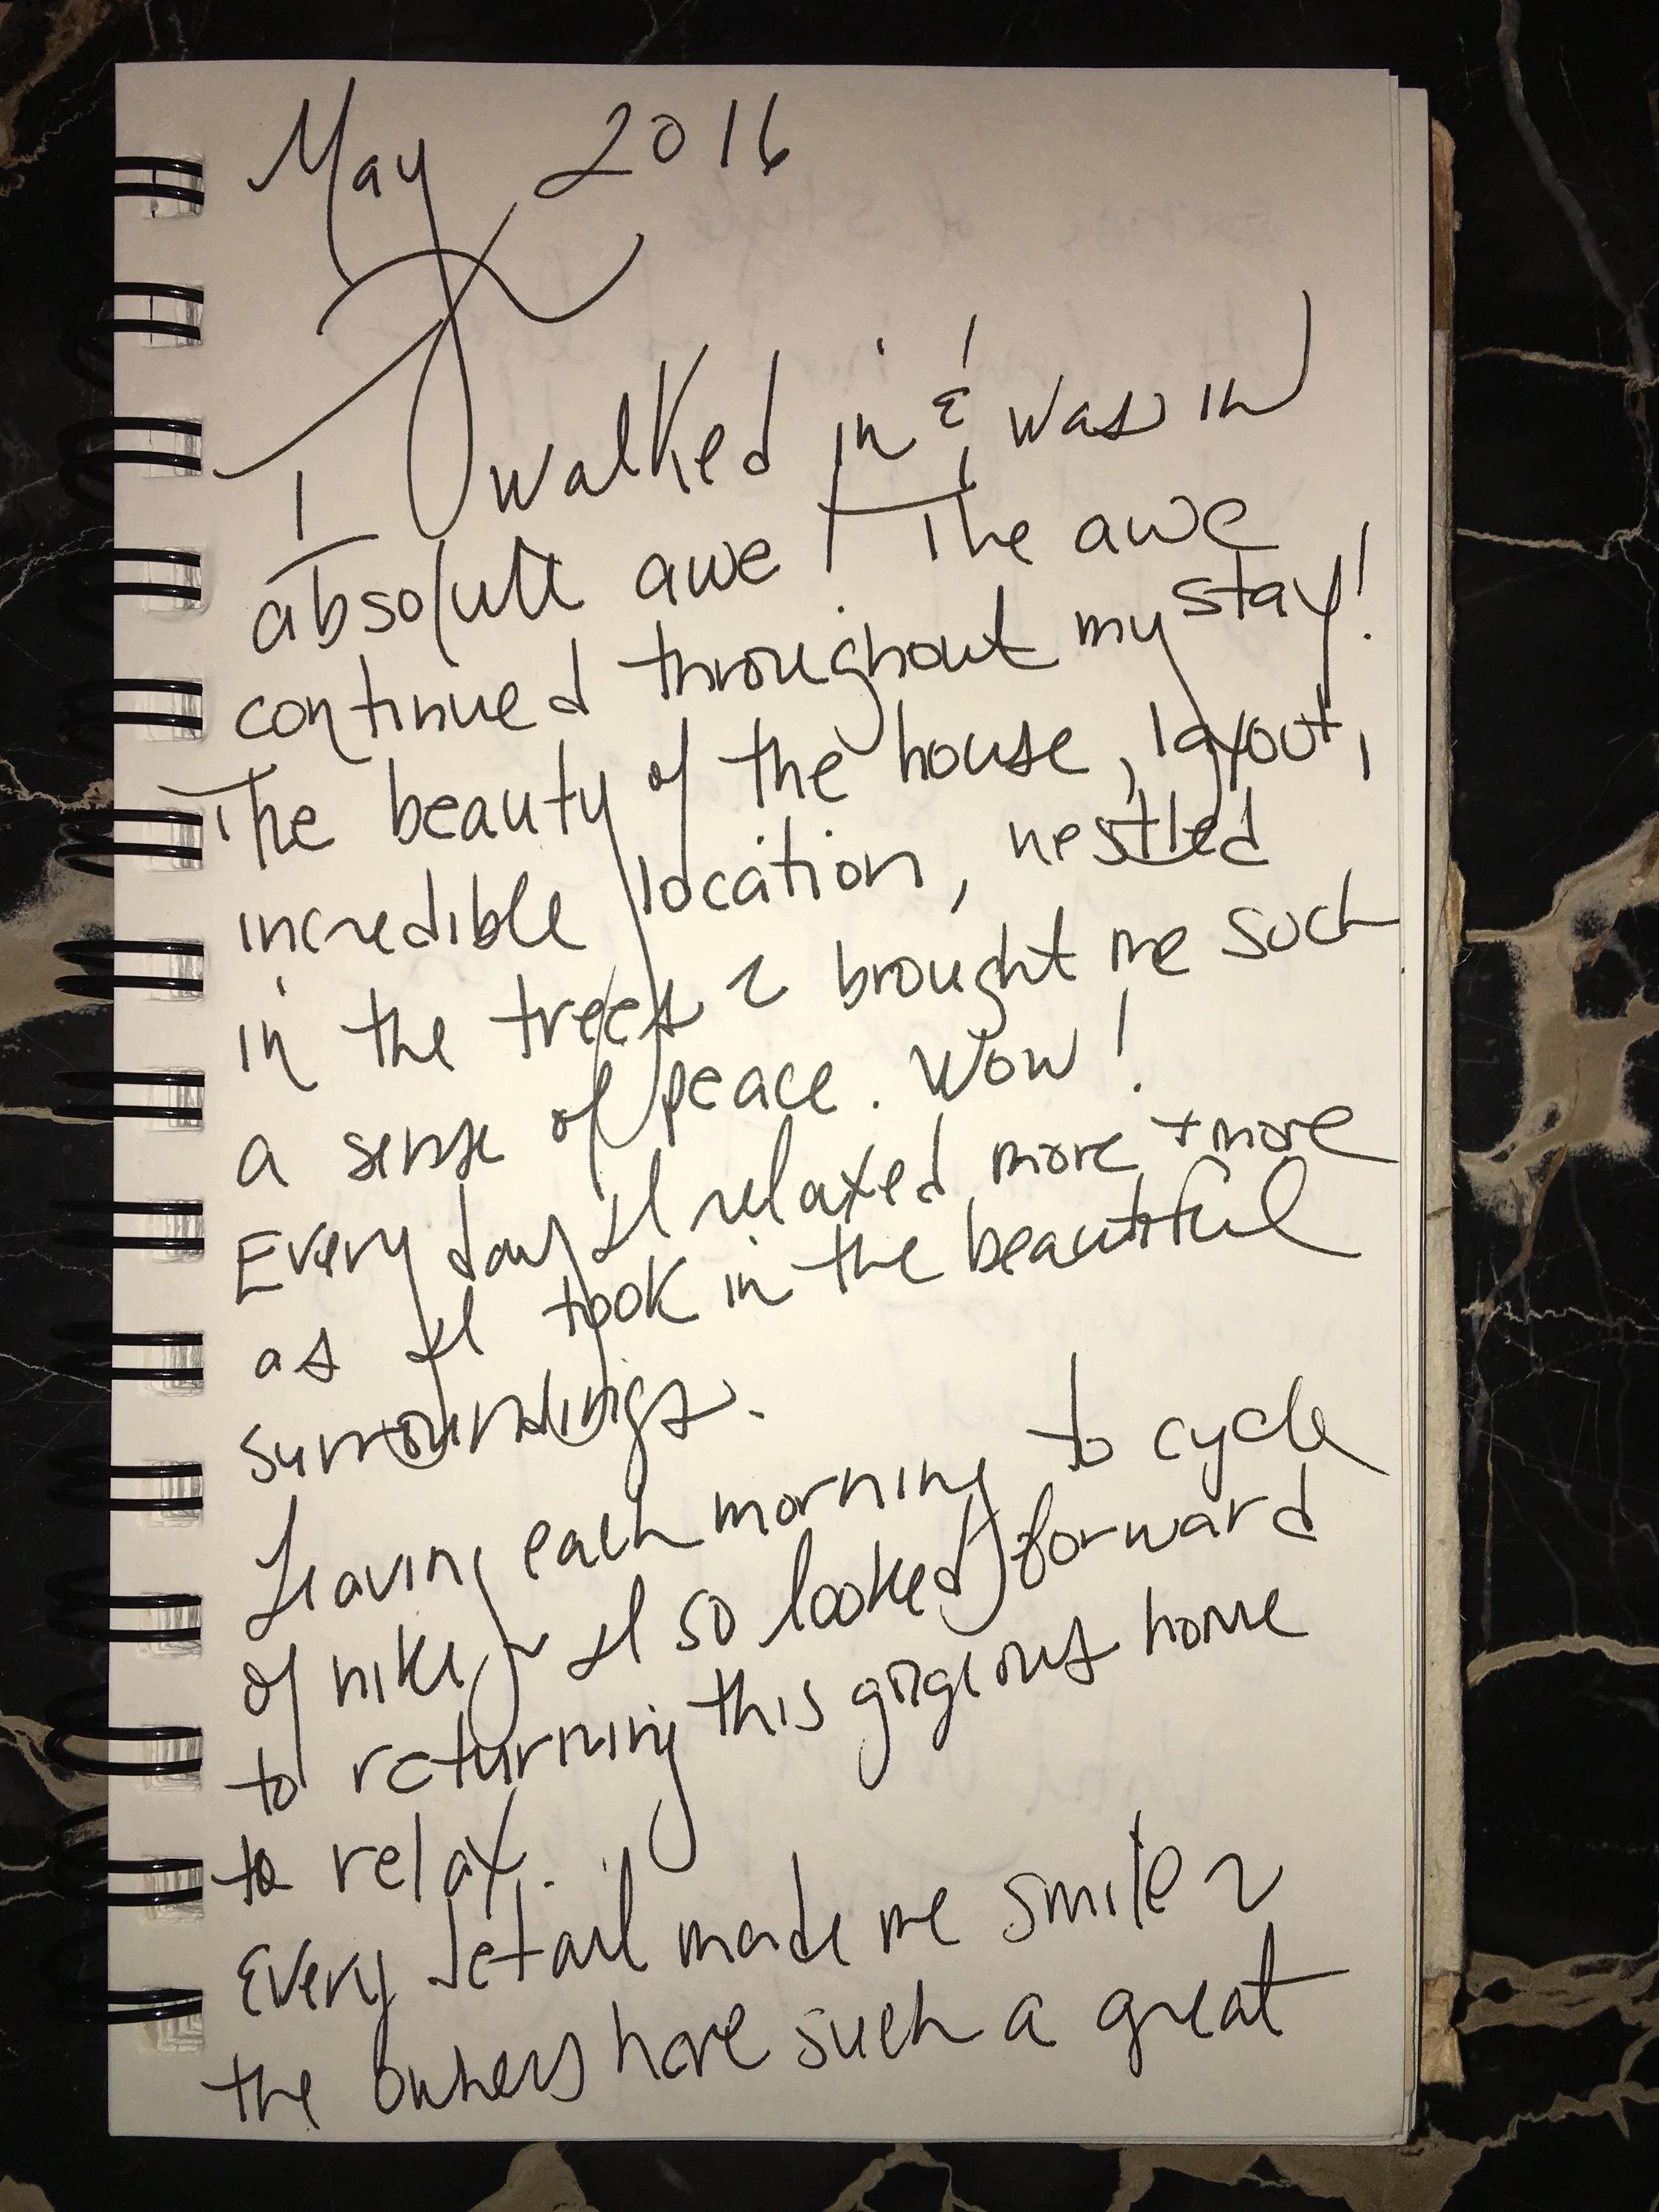 May 2016
I walked in & was in
absolute awe! The awe
continued throughout my stay!
The beauty of the house, layout,
incredible location, nestled
in the trees ~ brought me such
a sense of peace. Wow!
Every day I relaxed more + more
as I took in the beautiful
surroundings.
Leaving each morning to cycle
of hike, ~ I so looked forward
to returning this gorgeous home
to relax.
Every detail made me smile ~
the owners have such a great